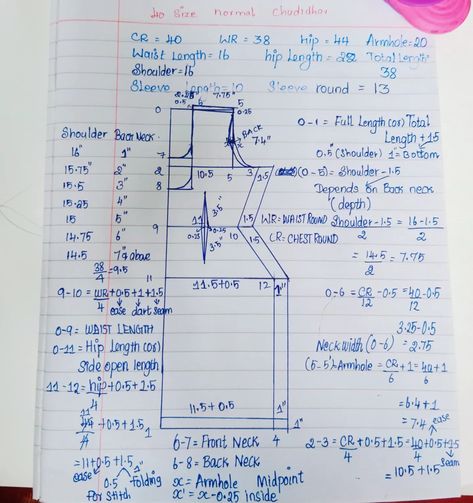 40 Size normal Chudidhar
CR = 40 WR = 38 Hip = 44 Armhole = 20
Waist Length = 16 hip Length = 22 Total Length
Shoulder = 16 38
Sleeve Length = 10 Sleeve round = 13
7.75"
0.5 6 5
0 0.25
BACK
7.4"
Shoulder Back Neck
16" 1"
15.75" 2"
15.5 3"
15.25 4"
15 5"
14.75 6"
14.5 7" & above
7
2
8
5 3 1.5
3.5"
11
0.25 0.25
3.5"
9 10
1.5
1.5
11
11.5+0.5 12 1"
11.5 + 0.5 1"
1 4 1"
38/4 = 9.5
9-10 = WR/4 + 0.5 + 1 + 1.5
ease dart seam
0-9 = WAIST LENGTH
0-11 = Hip Length (or)
Side open length
11-12 = hip/4 + 0.5 + 1.5
11
44/4 + 0.5 + 1.5
= 11 + 0.5 + 1.5
ease 0.5 folding
for stitch
6-7 = Front Neck
6-8 = Back Neck
x = Armhole Midpoint
x' = x-0.25 inside
0-1 = Full Length (or) Total
Length + 1.5
0.5" (Shoulder) 1" = Bottom
(0-5) = Shoulder - 1.5
Depends on Back neck
(depth)
WR = WAIST ROUND
CR = CHEST ROUND
Shoulder - 1.5/2 = 16 - 1.5/2
= 14.5/2 = 7.75
0-6 = CR/12 - 0.5 = 40/12 - 0.5
3.25 - 0.5
Neck width (0-6) = 2.75
(5-5') = Armhole = CR/6 + 1 = 40/6 + 1
= 6.4 + 1
= 7.4
ease
2-3 = CR/4 + 0.5 + 1.5 = 40/4 + 0.5 + 1.5
seam
= 10.5 + 1.5